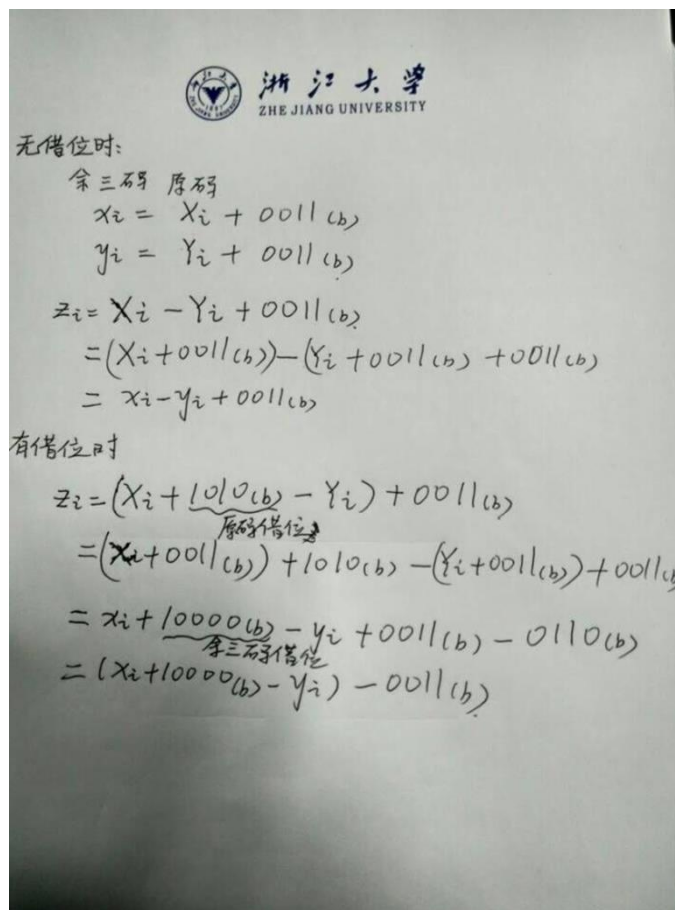 浙江大学
ZHE JIANG UNIVERSITY
无借位时:
余三码 原码
xi = Xi + 0011(b)
yi = Yi + 0011(b)
zi = Xi - Yi + 0011(b)
=(Xi+0011(b))-(Yi+0011(b) +0011(b)
= xi-yi+0011(b)
有借位时
zi=(Xi+1010(b)-Yi)+0011(b)
原码借位
=(Xi+0011(b))+1010(b)-(Yi+0011(b))+0011(b
= xi+10000(b)-yi+0011(b)-0110(b)
余三码借位
=(xi+10000(b)-yi)-0011(b)